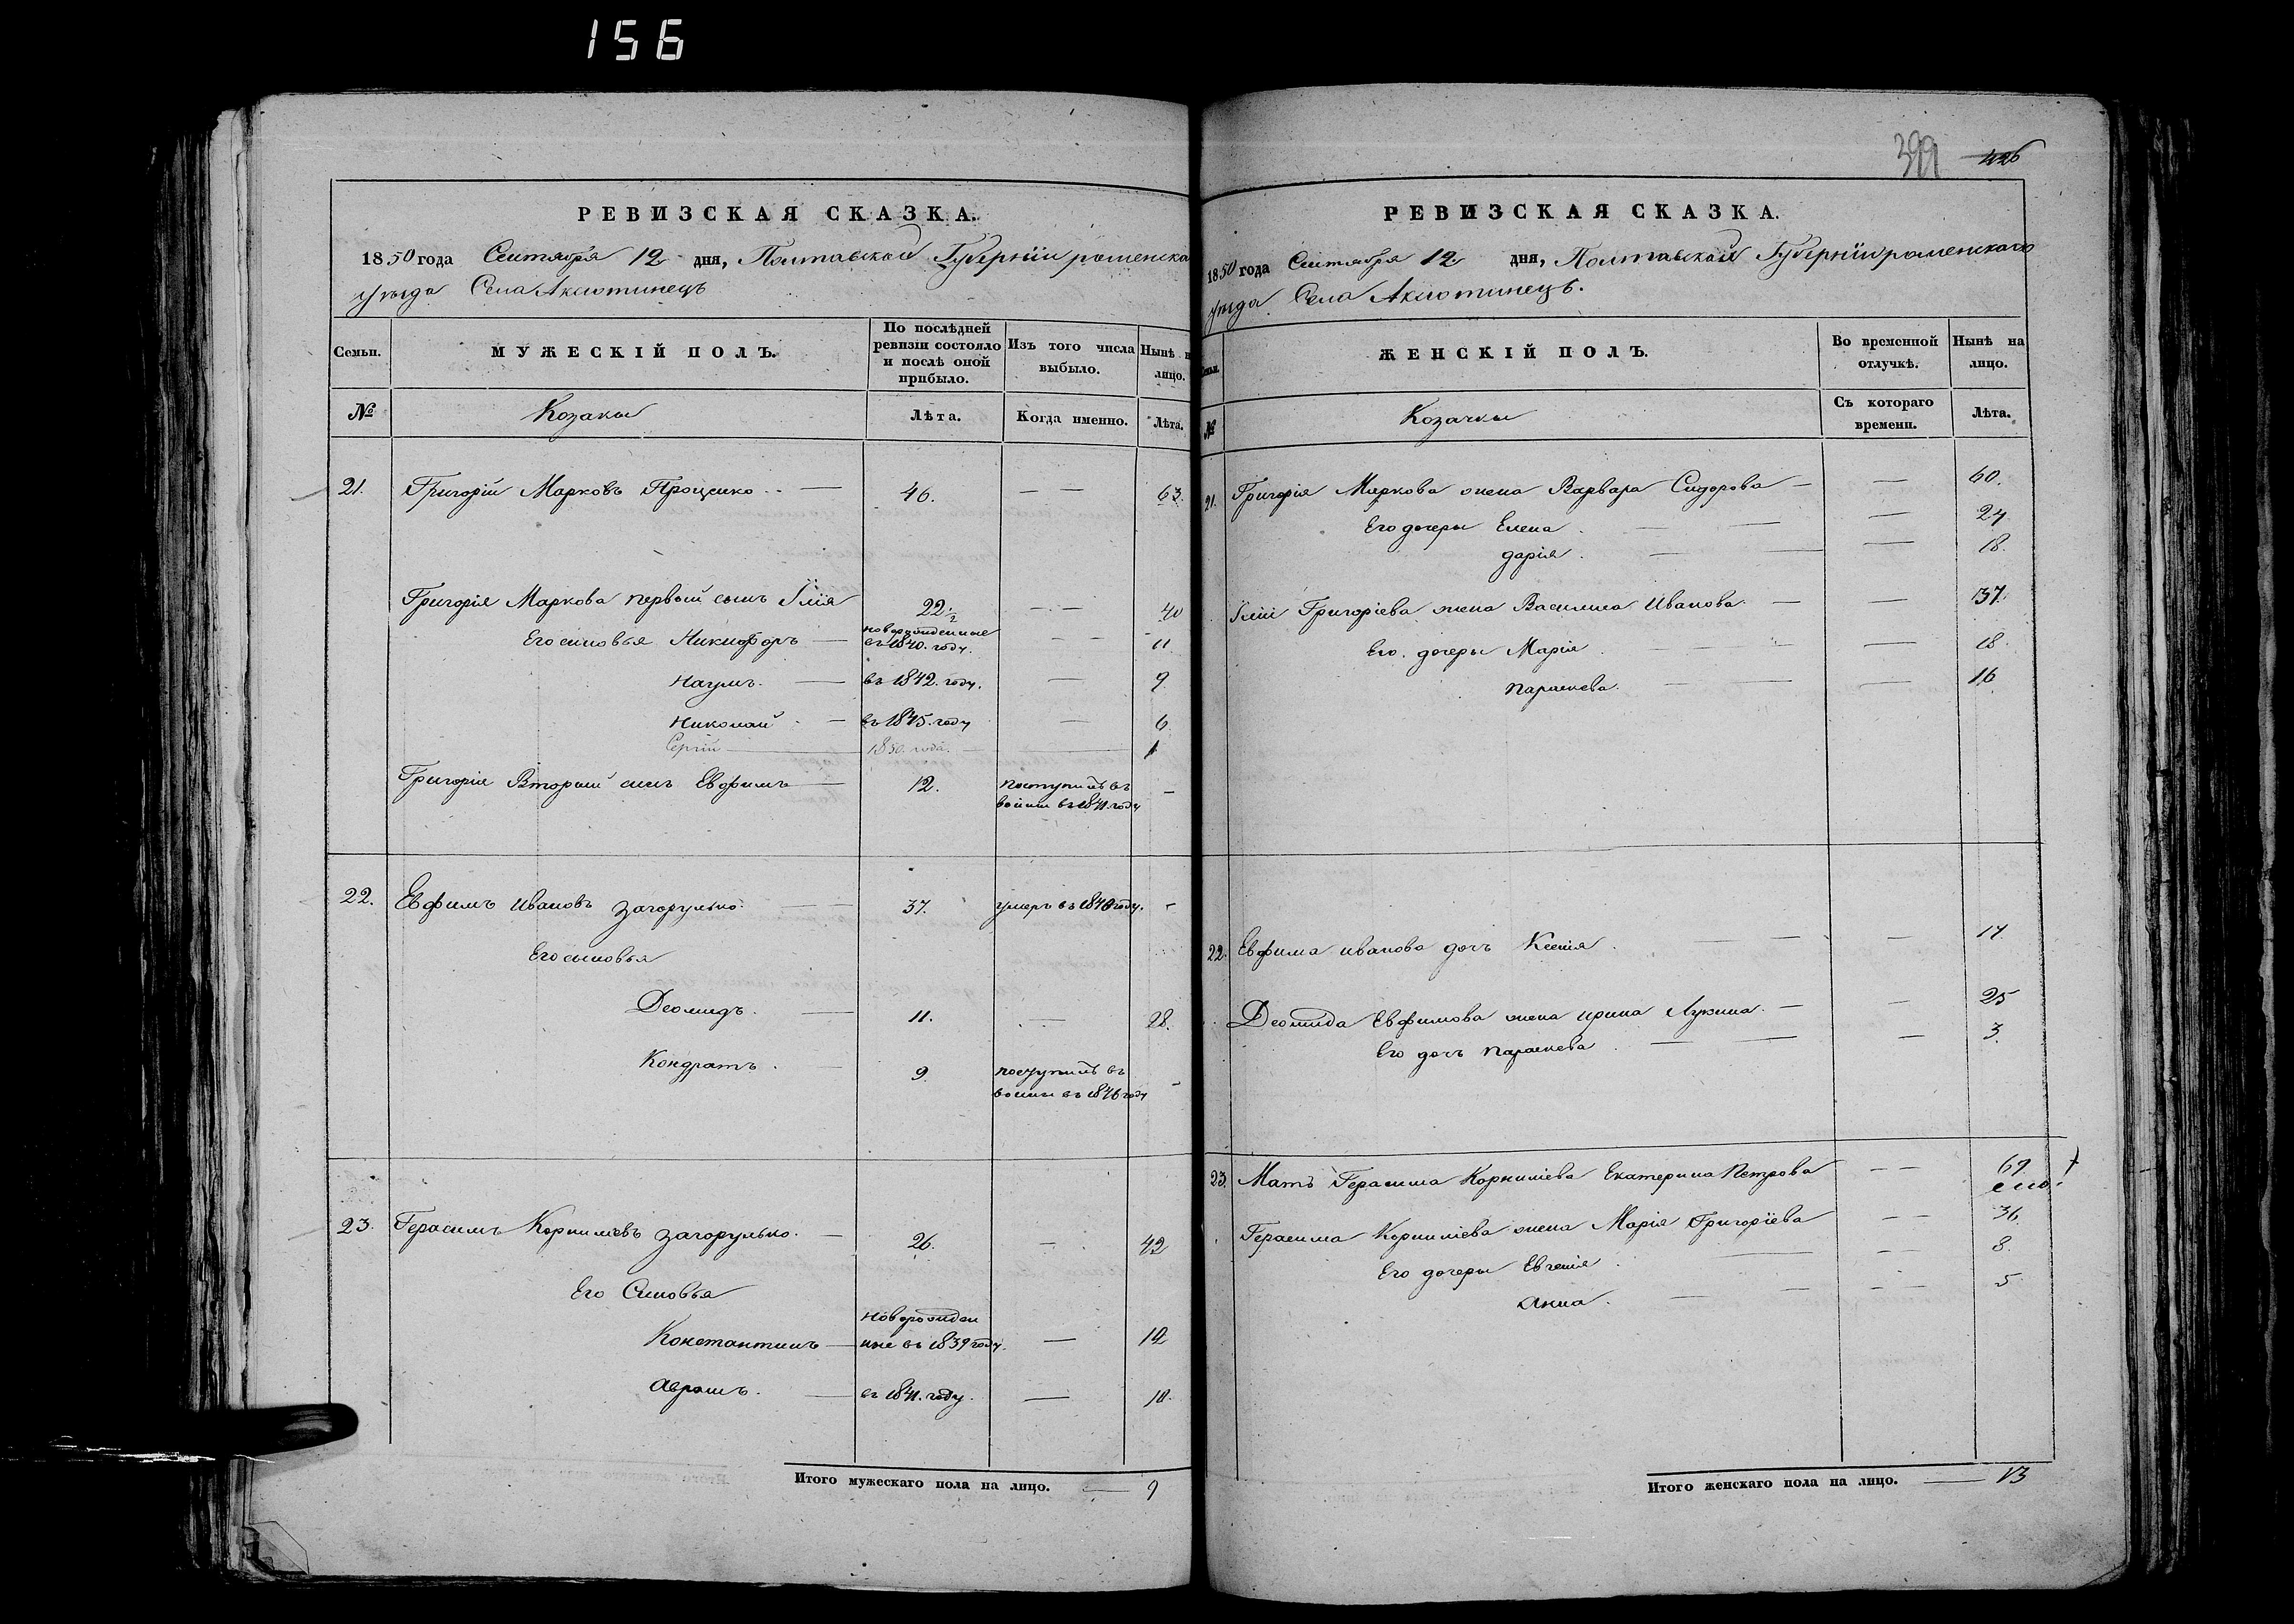 156
РЕВИЗСКАЯ СКАЗКА.
1850 года Сентября 12 дня, Полтавской Губернїи роменска
уѣзда Села Аксютинецъ
Семьи.
МУЖЕСКІЙ ПОЛЪ.
По послѣдней ревизіи состояло и послѣ оной прибыло.
Изъ того числа выбыло.
Нынѣ н лицо.
№
Козаки
Лѣта.
Когда именно.
Лѣта.
21. Григорій Марковъ Проценко 46. 63.
Григорія Маркова первый сынъ Илія 22 1/2 40
Его сыновья Никифоръ новорожденные въ 1840. году. 11
Наумъ. въ 1842. году. 9
Николай въ 1845. году 6
Сергій 1850. года. 1
Григорія Вторый сынъ Евфимъ 12. поступилъ въ
въ 1841. году
22. Евфимъ Ивановъ Загорулько 37. умеръ въ 1848 году.
Его сыновья
Деомидъ. 11. 28.
Кондратъ. 9. поступилъ въ
въ 1846 году
23. Герасимъ Корнилїевъ Загорулько. 26. 42
Его Сыновья
Константинъ новорожден
ные въ 1839 году. 12
Аврамъ. въ 1841. году. 10.
Итого мужескаго пола на лицо. 9
399 426
РЕВИЗСКАЯ СКАЗКА.
1850 года Сентября 12 дня, Полтавской Губернїи роменскаго
уѣзда Села Аксютинецъ.
ЖЕНСКІЙ ПОЛЪ.
Во временной отлучкѣ.
Нынѣ на лицо.
№
Козачки
Съ котораго времени.
Лѣта.
21. Григорія Маркова жена Варвара Сидорова 60.
Его дочеры Елена 24
дарія 18.
Иліи Григоріева жена Василиса Иванова 37.
Его дочеры Марія 18.
параскева. 16
22. Евфима иванова дочь Ксенія 17.
Деомида Евфимова жена ирина Лукина 25
Его дочь параскева 3.
23. Мать Герасима Корнилїева Екатерина Петрова 69
Герасима Корнилїева жена Марія Григорїева 36.
Его дочеры Евгенія 8.
анна 5
Итого женскаго пола на лицо. 13